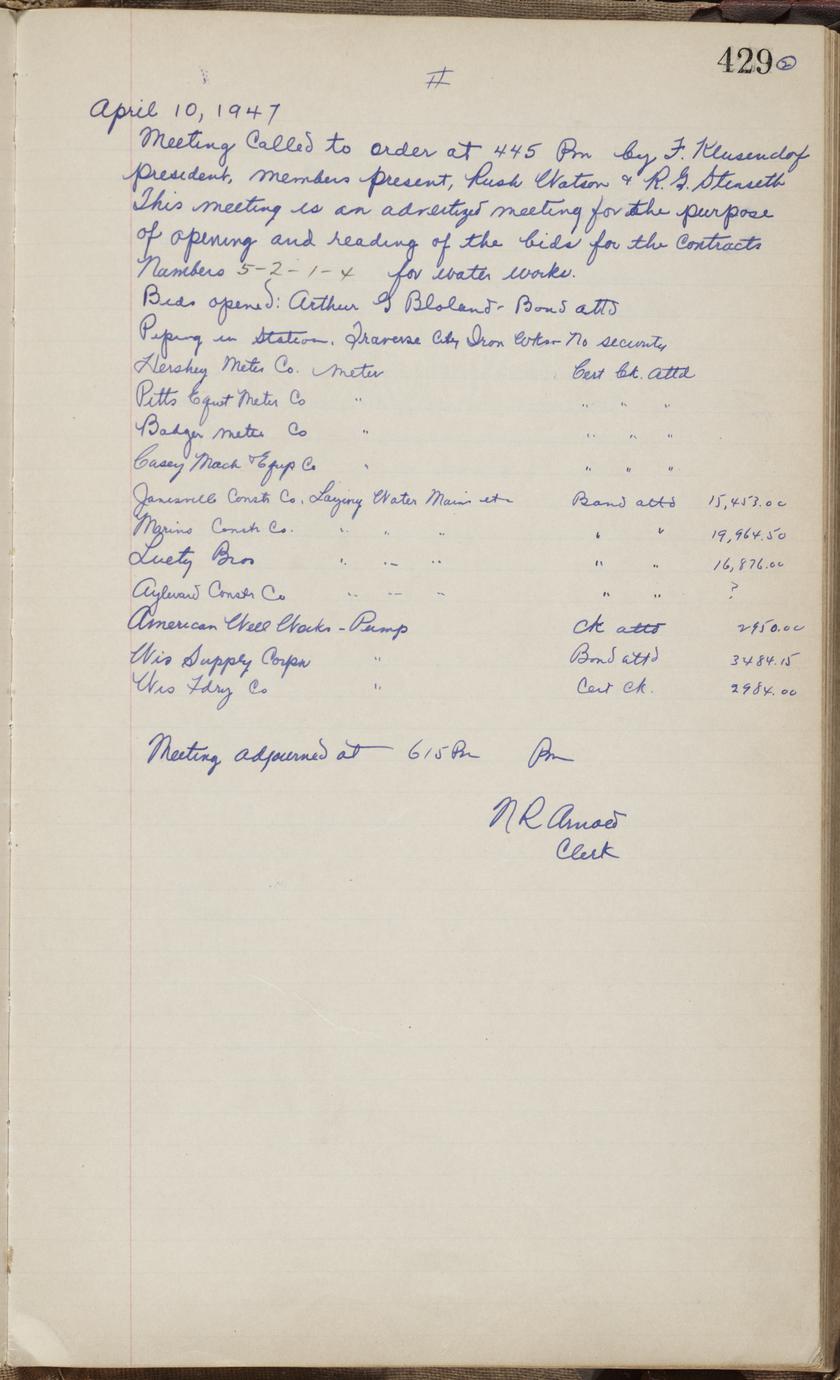 429 2
II
April 10, 1947
Meeting Called to order at 445 Pm by F. Klusendof
president, members present, Rush Watson & R.G. Stenseth
This meeting is an advertized meeting for the purpose
of opening and reading of the bids for the contracts
Numbers 5-2-1-4 for water works.
Bids opened: Arthur G Bloland - Bond attd
Piping in Station. Traverse City Iron Wks - No security
Hershey Meter Co. Meter Cert Ck. attd
Pitts Equit Meter Co " " " "
Badger meter Co " " " "
Casey Mach & Equp Co " " " "
Janesville Constr Co. Laying Water Mains etc Bond attd 15,453.00
Marino Constr Co. " " " " " 19,964.50
Luety Bros " " " " " 16,876.00
Aylward Constr Co " " " " " ?
American Well Works - Pump Ck attd 2950.00
Wis Supply Corpn " Bond attd 3484.15
Wis Fdry Co " Cert Ck. 2984.00
Meeting adjourned at 615 Pm Pm
N R Arnold
Clerk